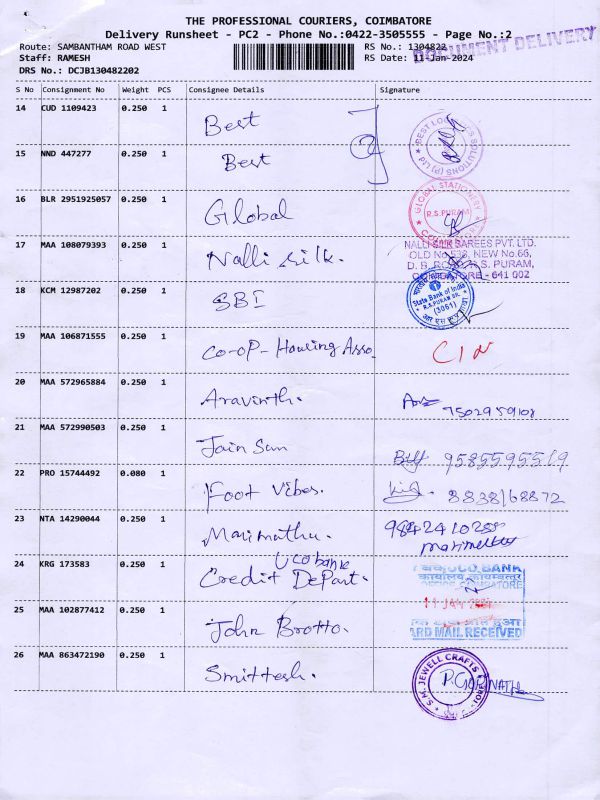 THE PROFESSIONAL COURIERS, COIMBATORE
Delivery Runsheet - PC2 - Phone No.:0422-3505555 - Page No.:2
Route: SAMBANTHAM ROAD WEST
RS No.: 1304822
DOCUMENT DELIVERY
Staff: RAMESH
RS Date: 11-Jan-2024
DRS No.: DCJB130482202
S No Consignment No Weight PCS Consignee Details Signature
14 CUD 1109423 0.250 1 Best
BEST LOGISTICS SOLUTIONS (P) LTD
15 NND 447277 0.250 1 Best
16 BLR 2951925057 0.250 1 Global
GLOBAL STATIONERY
R.S.PURAM
17 MAA 108079393 0.250 1 Nalli silk.
NALLI SILK SAREES PVT. LTD.
OLD No.538, NEW No.66,
D. B. ROAD, R. S. PURAM,
COIMBATORE - 641 002
18 KCM 12987202 0.250 1 SBI
State Bank of India
R.S.PURAM BR.
(3061)
19 MAA 106871555 0.250 1 CO-OP-Housing Asso
20 MAA 572965884 0.250 1 Aravinth.
7502959108
21 MAA 572990503 0.250 1 Jain Sun
9585595519
22 PRO 15744492 0.080 1 Foot Vibes.
8838168872
23 NTA 14290044 0.250 1 Marimuthu.
24 KRG 173583 0.250 1 Credit DePart.
UCO bank
UCO BANK
कार्यालय, कोयम्बत्तूर
OFFICE, COIMBATORE
11 JAN
25 MAA 102877412 0.250 1 John Brotto.
ARD MAIL RECEIVED
26 MAA 863472190 0.250 1 Smittesh.
S.M. JEWELL CRAFTS
P. GOPINATH